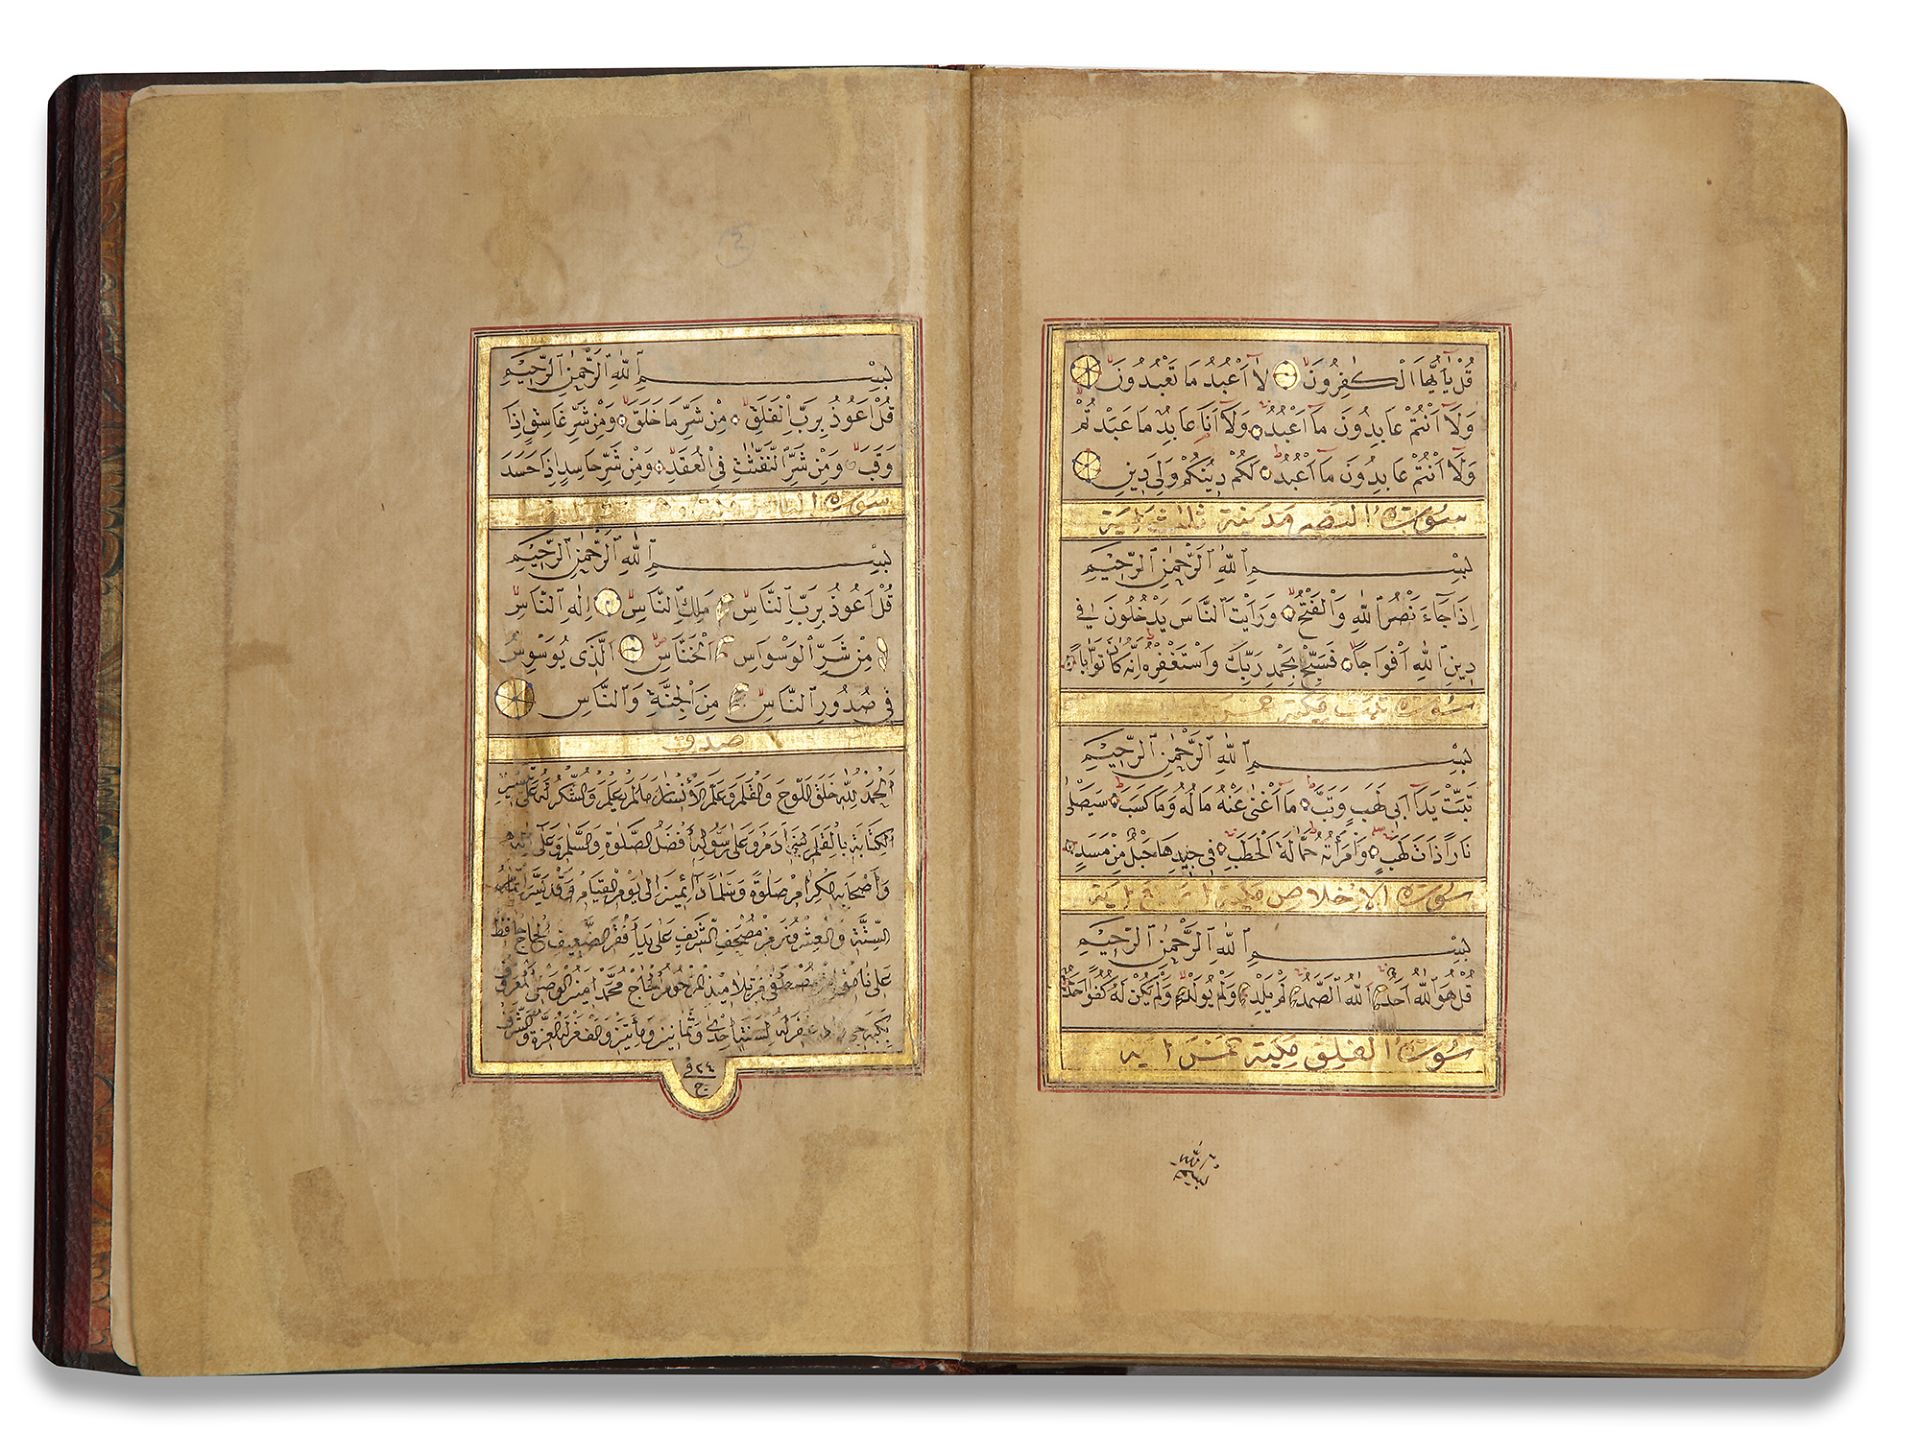 قُلْ يَآ أَيُّهَا الْكٰفِرُونَ لَآ أَعْبُدُ مَا تَعْبُدُونَ
وَلَآ أَنْتُمْ عَابِدُونَ مَآ أَعْبُدُ وَلَآ أَنَا عَابِدٌ مَا عَبَدْتُمْ
وَلَآ أَنْتُمْ عَابِدُونَ مَآ أَعْبُدُ لَكُمْ دِينُكُمْ وَلِيَ دِينِ
سورة النصر مدنية ثلاث اية
بِسْمِ اللّٰهِ الرَّحْمٰنِ الرَّحِيمِ
إِذَا جَآءَ نَصْرُ اللّٰهِ وَالْفَتْحُ وَرَأَيْتَ النَّاسَ يَدْخُلُونَ فِي
دِينِ اللّٰهِ أَفْوَاجًا فَسَبِّحْ بِحَمْدِ رَبِّكَ وَاسْتَغْفِرْهُ إِنَّهُ كَانَ تَوَّابًا
سورة تبت مكية خمس
بِسْمِ اللّٰهِ الرَّحْمٰنِ الرَّحِيمِ
تَبَّتْ يَدَآ أَبِي لَهَبٍ وَتَبَّ مَآ أَغْنٰى عَنْهُ مَالُهُ وَمَا كَسَبَ سَيَصْلٰى
نَارًا ذَاتَ لَهَبٍ وَامْرَأَتُهُ حَمَّالَةَ الْحَطَبِ فِي جِيدِهَا حَبْلٌ مِنْ مَسَدٍ
سورة الإخلاص مكية اربع اية
بِسْمِ اللّٰهِ الرَّحْمٰنِ الرَّحِيمِ
قُلْ هُوَ اللّٰهُ أَحَدٌ اَللّٰهُ الصَّمَدُ لَمْ يَلِدْ وَلَمْ يُولَدْ وَلَمْ يَكُنْ لَهُ كُفُوًا أَحَدٌ
سورة الفلق مكية خمس اية
بسم الله
بِسْمِ اللّٰهِ الرَّحْمٰنِ الرَّحِيمِ
قُلْ أَعُوذُ بِرَبِّ الْفَلَقِ مِنْ شَرِّ مَا خَلَقَ وَمِنْ شَرِّ غَاسِقٍ إِذَا
وَقَبَ وَمِنْ شَرِّ النَّفّٰثٰتِ فِي الْعُقَدِ وَمِنْ شَرِّ حَاسِدٍ إِذَا حَسَدَ
سورة الناس
بِسْمِ اللّٰهِ الرَّحْمٰنِ الرَّحِيمِ
قُلْ أَعُوذُ بِرَبِّ النَّاسِ مَلِكِ النَّاسِ إِلٰهِ النَّاسِ
مِنْ شَرِّ الْوَسْوَاسِ الْخَنَّاسِ الَّذِي يُوَسْوِسُ
فِي صُدُورِ النَّاسِ مِنَ الْجِنَّةِ وَالنَّاسِ
صدق
اَلْحَمْدُ لِلّٰهِ خَلَقَ اللَّوْحَ وَالْقَلَمَ وَعَلَّمَ الْإِنْسَانَ مَا لَمْ يَعْلَمْ وَالشُّكْرُ لَهُ عَلٰى
الْكِتَابَةِ بِالْقَلَمِ وَعَلٰى رَسُولِهِ أَفْضَلُ الصَّلٰوةِ وَالسَّلَمِ وَعَلٰى آلِهِ
وَأَصْحَابِهِ الْكِرَامِ صَلٰوةً وَسَلَمًا دَآئِمَيْنِ إِلٰى يَوْمِ الْقِيَامِ وَقَدْ يَسَّرَ
السِّتَّةِ وَالْعِشْرُونَ مِنْ مُصْحَفِ الشَّرِيفِ عَلٰى يَدِ أَفْقَرِ الضَّعِيفِ الْحَاجّ حَافِظ
عَلِي مِنْ تَلَامِيذِ الْمَرْحُومِ الْحَاجّ مُحَمَّد أَمِين الْوَصْفِي الْمَعْرُوف
غُفِرَ لَهُ لِسَنَةِ إِحْدٰى وَثَمَانِينَ وَمِأَتَيْنِ وَأَلْف لَهُ الْعِزَّة وَالشَّرَف
٢٤ ج